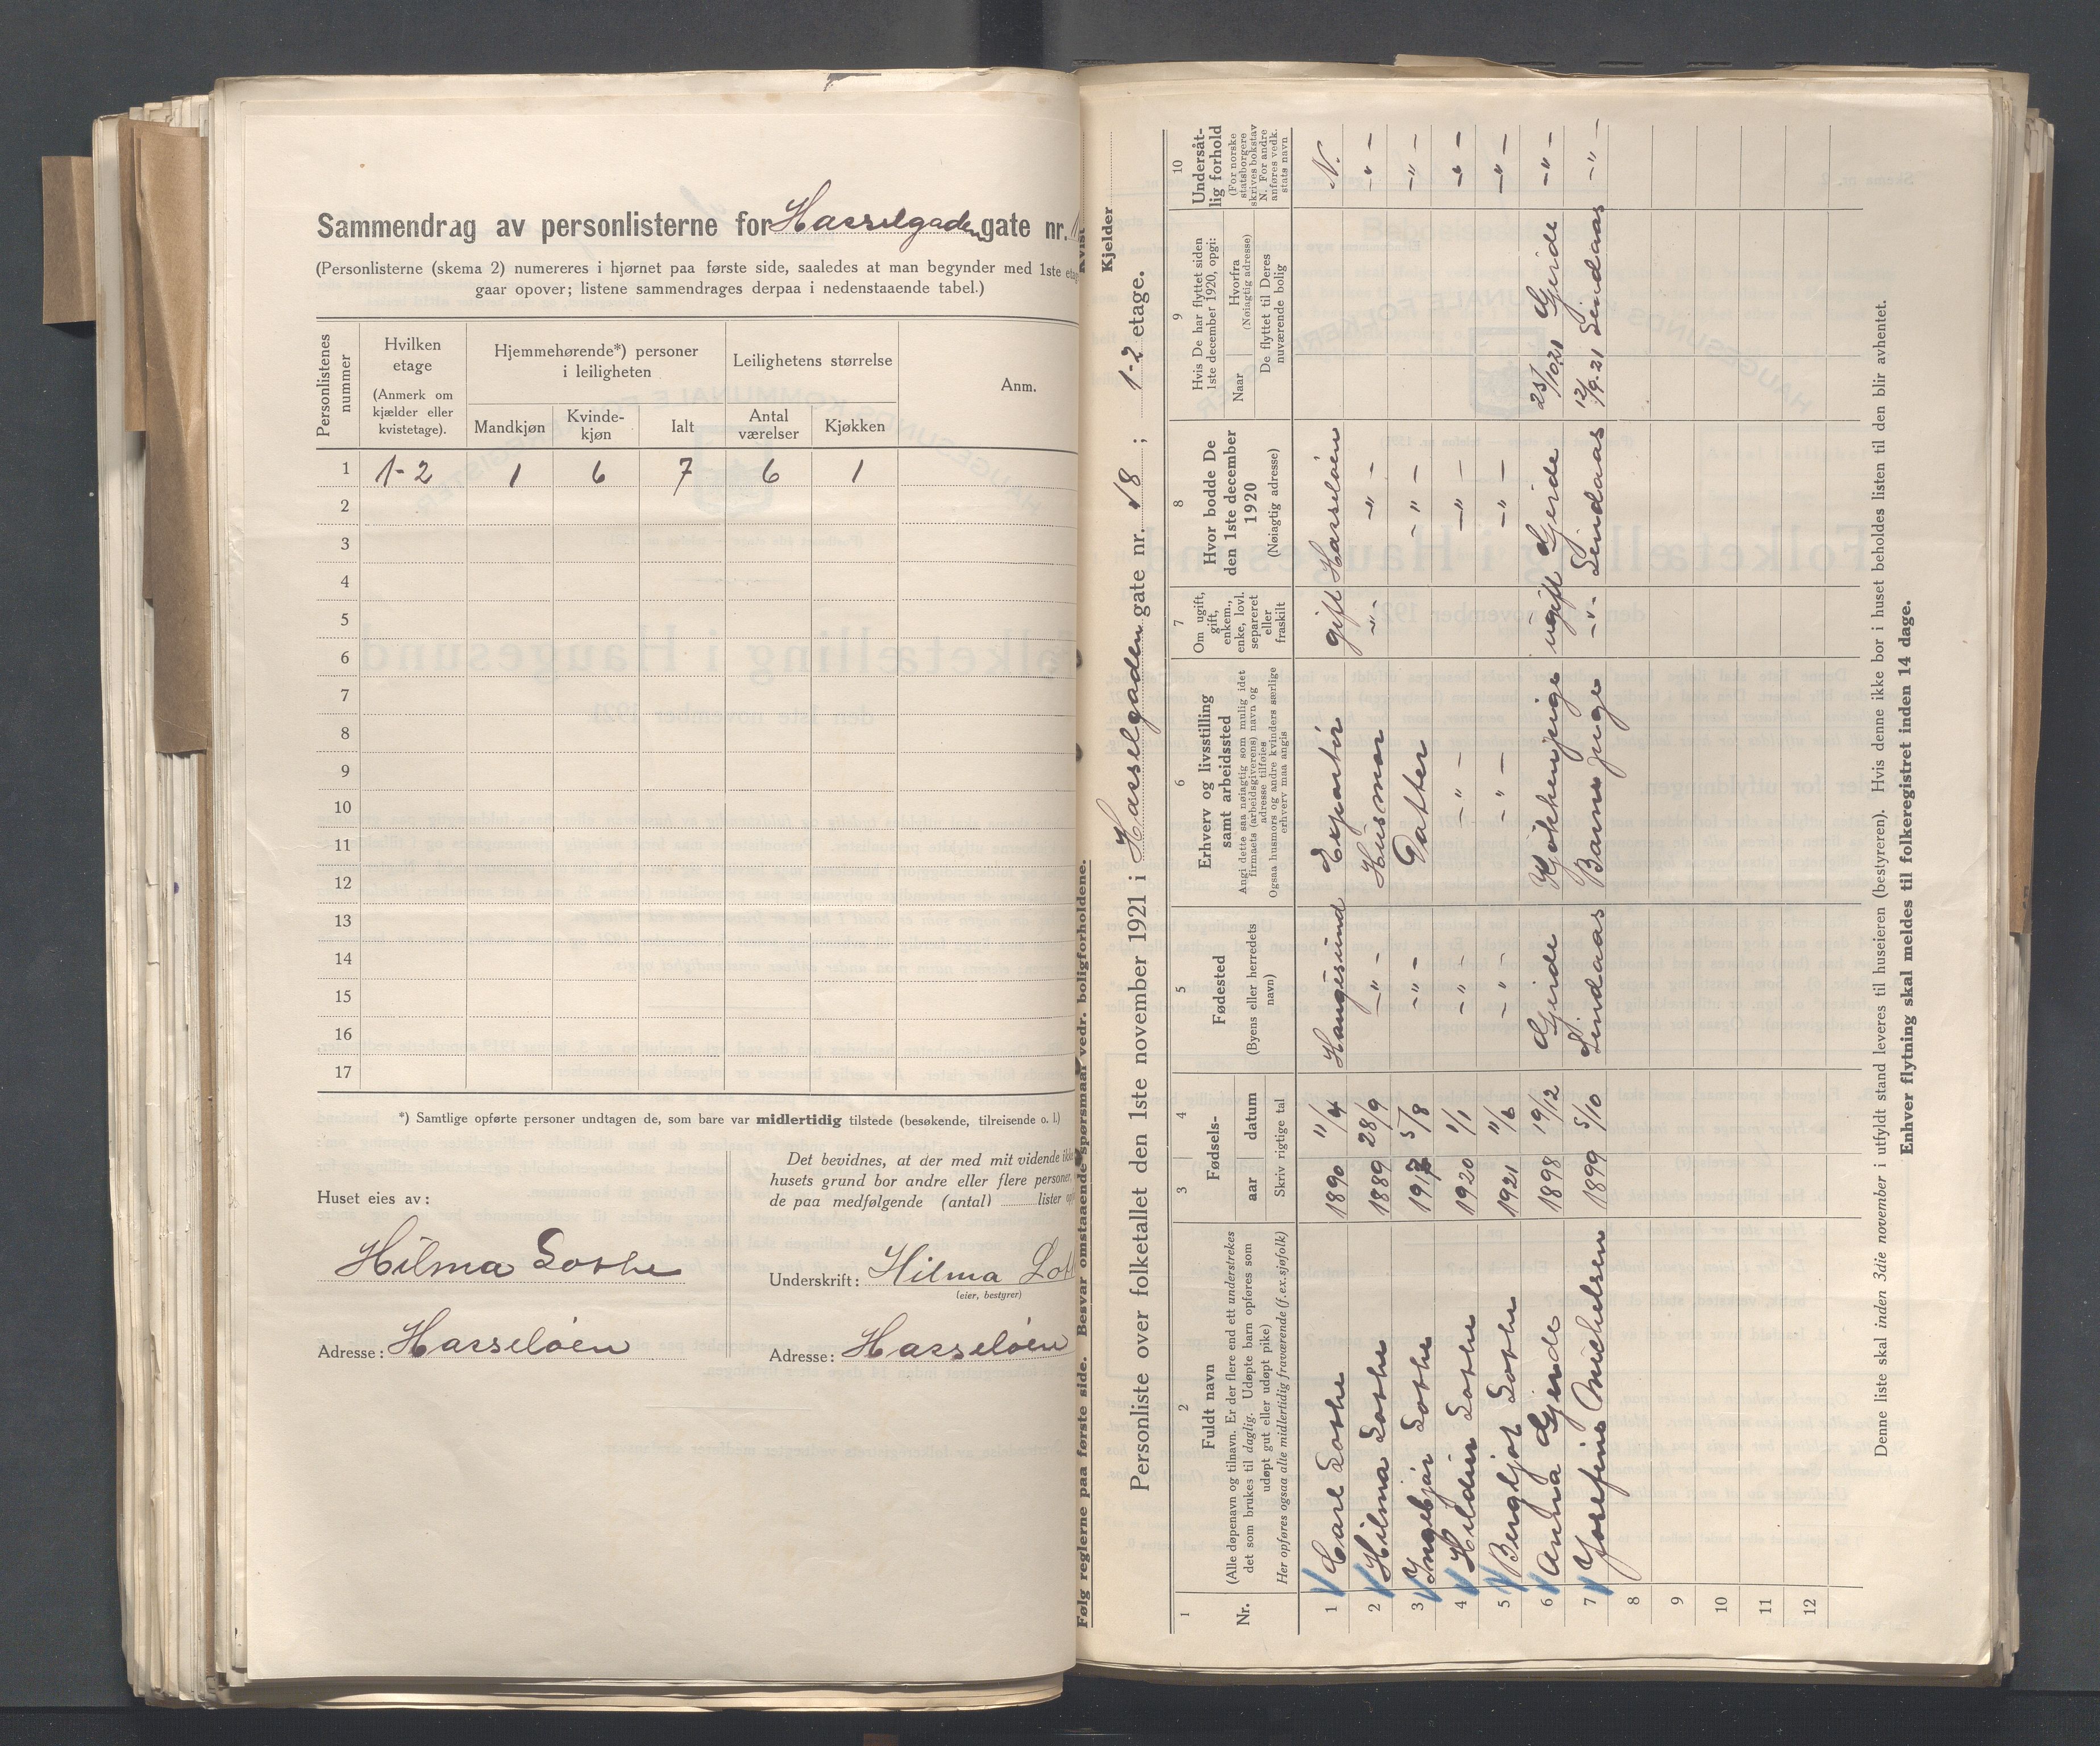 Sammendrag av personlisterne for Hasselgaden gate nr.
(Personlisterne (skema 2) numereres i hjørnet paa første side, saaledes at man begynder med 1ste
gaar opover; listene sammendrages derpaa i nedenstaaende tabel.)
Personlistenes nummer
Hvilken etage
(Anmerk om kjælder eller kvistetage).
Hjemmehørende*) personer i leiligheten
Mandkjøn
Kvindekjøn
Ialt
Leilighetens størrelse
Antal værelser
Kjøkken
Anm.
1 1-2 1 6 7 6 1
2
3
4
5
6
7
8
9
10
11
12
13
14
15
16
17
*) Samtlige opførte personer undtagen de, som bare var midlertidig tilstede (besøkende, tilreisende o. l.)
Huset eies av:
Hilma Lothe
Adresse: Hasseløen
Det bevidnes, at der med mit vidende
husets grund bor andre eller flere personer,
de paa medfølgende (antal) lister
Underskrift: Hilma
(eier, bestyrer)
Adresse: Hasseløen
Følg reglerne paa første side. Besvar omstaaende spørsmaal vedr. boligforholdene.
Kvist
Kjelder
Personliste over folketallet den 1ste november 1921 i Hasselgaden gate nr. 18 ; 1-2 etage.
1 Nr.
2 Fuldt navn
(Alle døpenavn og tilnavn. Er der flere end ett understrekes
det som brukes til daglig. Udøpte barn opføres som
udøpt gut eller udøpt pike)
Her opføres ogsaa alle midlertidig fraværende (f.ex. sjøfolk)
3 4 Fødsels-
aar datum
Skriv rigtige tal
5 Fødested
(Byens eller herredets navn)
6 Erhverv og livsstilling samt arbeidssted
Angi dette saa nøiagtig som mulig idet
firmaets (arbeidsgiverens) navn og
adresse tilføies
Ogsaa husmors og andre kvinders særlige
erhverv maa angis
7 Om ugift, gift, enkem., enke, lovl. separeret eller fraskilt
8 Hvor bodde De den 1ste december 1920
(Nøiagtig adresse)
9 Hvis De har flyttet siden 1ste december 1920, opgi:
Naar
Hvorfra
(Nøiagtig adresse)
De flyttet til Deres nuværende bolig
10 Undersåtlig forhold
(For norske statsborgere skrives bokstav N. For andre anføres vedk. stats navn
1 Carl Lothe 1890 11/4 Haugesund Exportør gift Hasseløen N.
2 Hilma Lothe 1889 28/9 -"- Husmor -"- -"- -"-
3 Ingebjør Lothe 5/8 -"- Datter -"- -"-
4 Hildur Lothe 1920 1/1 -"- -"- -"- -"-
5 Bergljot Lothe 1921 11/6 -"- -"- -"- -"-
6 Anna Gjerde 1898 19/12 Gjerde Kjøkkenpige ugift Gjerde 25/10 21 Gjerde -"-
7 Josefine Michelsen 1899 5/10 Lindaas Barnepige -"- Lindaas 12/9-21 Lindaas -"-
8
9
10
11
12
Denne liste skal inden 3die november i utfyldt stand leveres til huseieren (bestyreren). Hvis denne ikke bor i huset beholdes listen til den blir avhentet.
Enhver flytning skal meldes til folkeregistret inden 14 dage.